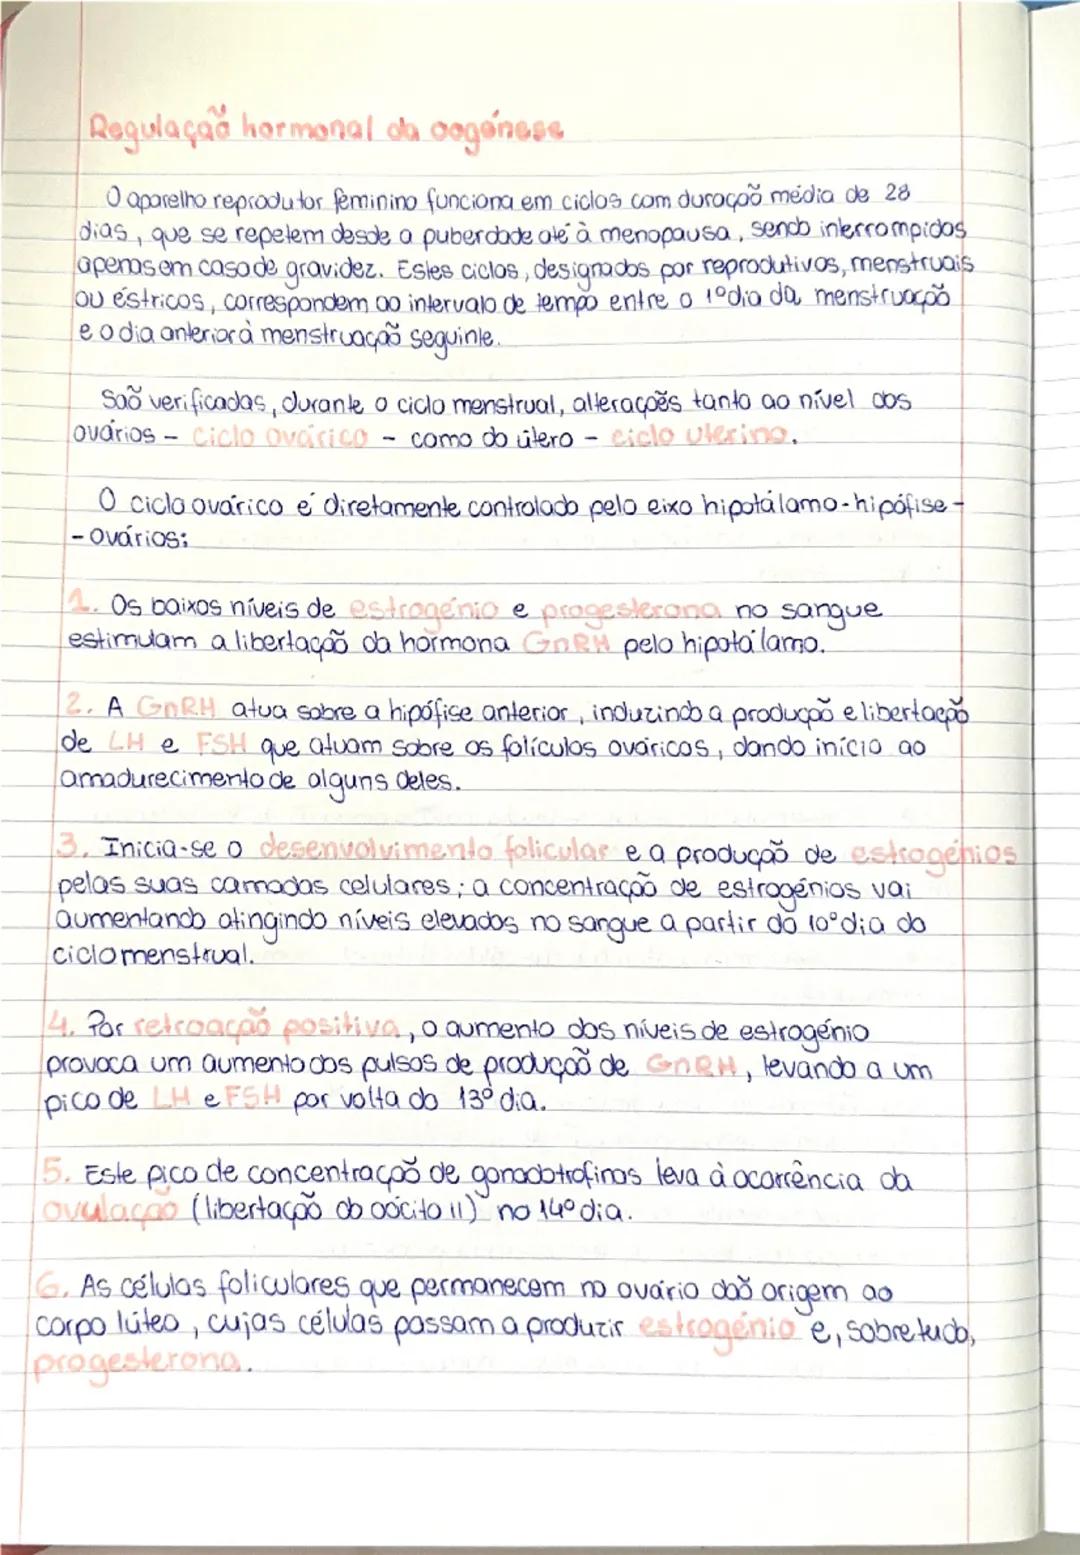 Regulação hormonal da oogénese
O aparelho reprodutor feminino funciona em ciclos com duração média de 28
dias, que se repetem desde a puberdade até à menopausa, sendo interrompidos
apenas em caso de gravidez. Estes ciclos, designados por reprodutivos, menstruais
ou éstricos, correspondem ao intervalo de tempo entre o 1º dia da menstruação
e o dia anterior à menstruação seguinte.
São verificadas, durante o ciclo menstrual, alterações tanto ao nível dos
ovários - ciclo ovárico - como do útero - ciclo uterino.
O ciclo ovárico é diretamente controlado pelo eixo hipotálamo-hipófise-
-ovários:
1. Os baixos níveis de estrogénio e progesterona no sangue
estimulam a libertação da hormona GnRH pelo hipotálamo.
2. A GnRH atua sobre a hipófise anterior, induzindo a produção e libertação
de LH e FSH que atuam sobre os folículos ováricos, dando início ao
amadurecimento de alguns deles.
3. Inicia-se o desenvolvimento folicular e a produção de estrogénios
pelas suas camadas celulares; a concentração de estrogénios vai
aumentando atingindo níveis elevados no sangue a partir do 10º dia do
ciclo menstrual.
4. Por retroação positiva, o aumento dos níveis de estrogénio
provoca um aumento dos pulsos de produção de GnRH, levando a um
pico de LH e FSH por volta do 13º dia.
5. Este pico de concentração de gonadotrofinas leva à ocorrência da
ovulação (libertação do oócito II) no 14º dia.
6. As células foliculares que permanecem no ovário dão origem ao
corpo lúteo, cujas células passam a produzir estrogénio e, sobretudo,
progesterona.